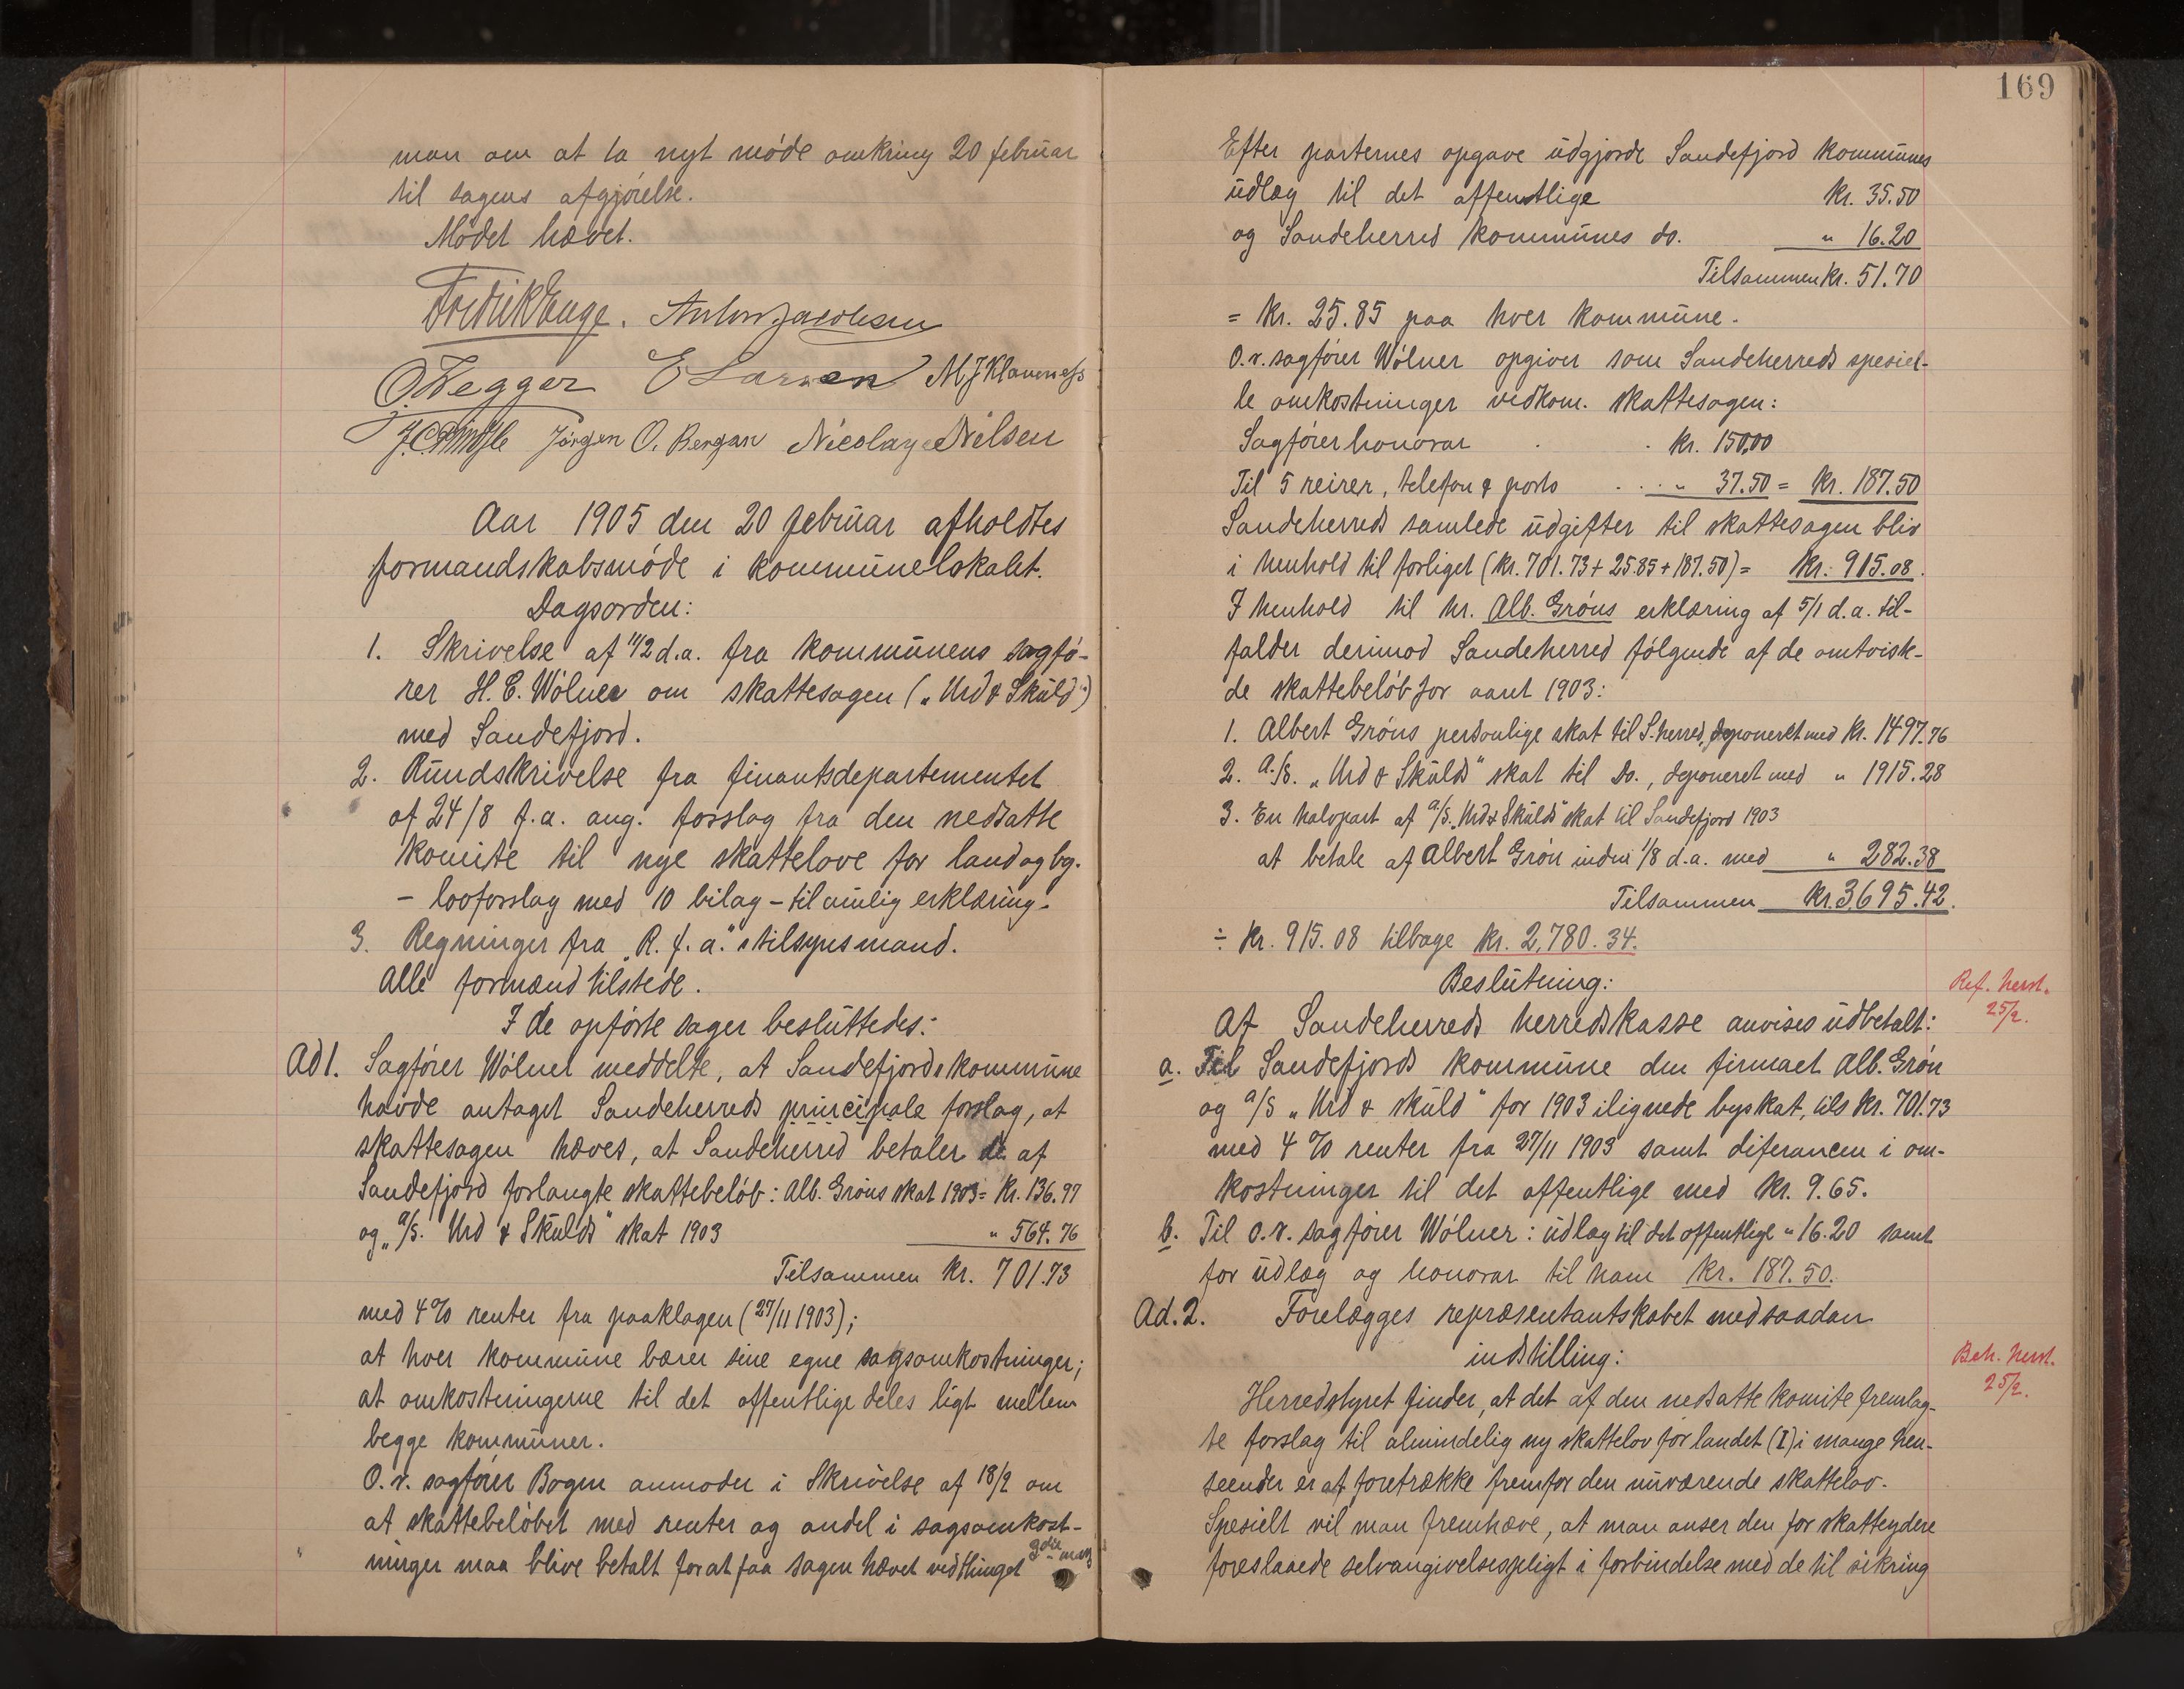 man om at ta nyt møde omkring 20 februar
til sagens afgjørelse.
Mødet hævet.
Anton Jacobsen
O. Wegger E Larsen M J Klaveness
Jørgen O. Bergan Nicolay Nilsen
Aar 1905 den 20 februar afholdtes
formandskabsmøde i kommunelokalet.
Dagsorden:
1. Skrivelse af 11/2 d.a. fra kommunens sagfø-
rer H. C. Wølner om skattesagen („Urd & Skuld“)
med Sandefjord.
2. Rundskrivelse fra finantsdepartementet
af 24/8 f.a. ang. forslag fra den nedsatte
komite til nye skattelove for land og by.
– lovforslag med 10 bilag – til mulig erklæring.
3. Regninger fra „R. f. a.“s tilsynsmand.
Alle formænd tilstede.
I de opførte sager besluttedes:
Ad 1. Sagfører Wølner meddelte, at Sandefjords kommune
havde antaget Sandeherreds principale forslag, at
skattesagen hæves, at Sandeherred betaler de af
Sandefjord forlangte skattebeløb: Alb. Grøns skat 1903 = Kr. 136.97
og „A/S. Urd & Skulds“ skat 1903 " 564.76
Tilsammen Kr. 701.73
med 4% renter fra paaklagen (27/11 1903);
at hver kommune bærer sine egne sagsomkostninger;
at omkostningerne til det offentlige deles ligt mellem
begge kommuner.
O.r. sagfører Bogen anmoder i Skrivelse af 18/2 om
at skattebeløbet med renter og andel i sagsomkost-
ninger maa blive betalt for at faa sagen hævet ved thinget 3die mars
169
Efter parternes opgave udgjorde Sandefjord kommunes
udlæg til det offentlige Kr. 35.50
og Sandeherred kommunes do. " 16.20
Tilsammen Kr. 51.70
= Kr. 25.85 paa hver kommune.
O.r. sagfører Wølner opgiver som Sandeherreds spesiel-
le omkostninger vedkom. skattesagen:
Sagførerhonorar . . Kr. 150,00
Til 5 reiser, telefon & porto . . . " 37.50 = Kr. 187.50
Sandeherreds samlede udgifter til skattesagen blir
i henhold til forliget (Kr. 701.73 + 25.85 + 187.50) = Kr. 915.08.
I henhold til hr. Alb. Grøns erklæring af 5/1 d.a. til-
falder derimod Sandeherred følgende af de omtvisk-
de skattebeløb for aaret 1903:
1. Albert Grøns personlige skat til S.herred, deponeret med Kr. 1497.76
2. A/S. „Urd & Skulds“ skat til Do., deponeret med " 1915.28
3. En halvpart af A/S. „Urd & Skulds“ skat til Sandefjord 1903
at betale af Albert Grøn inden 1/8 d.a. med " 282.38
Tilsammen Kr. 3,695.42.
÷ Kr. 915.08 tilbage Kr. 2,780.34.
Beslutning:
Ref. herst.
25/2.
Af Sandeherreds herredskasse anvises udbetalt:
a. Til Sandefjords kommune den firmaet Alb. Grøn
og A/S „Urd & Skuld“ for 1903 ilignede byskat, tils Kr. 701.73
med 4% renter fra 27/11 1903 samt diferancen i om-
kostninger til det offentlige med Kr. 9.65.
b. Til O.r. sagfører Wølner: udlæg til det offentlige " 16.20 samt
for udlæg og honorar til ham Kr. 187.50.
Ad. 2. Forelægges repræsentantskabet med saadan
indstilling:
Beh. herst.
25/2.
Herredstyret finder, at det af den nedsatte komite fremlag-
te forslag til almindelig ny skattelov for landet (I) i mange hen-
seender er at foretrække fremfor den nuværende skattelov.
Spesielt vil man fremhæve, at man anser den for skatteydere
foreslaaede selvangivelsespligt i forbindelse med de til sikring